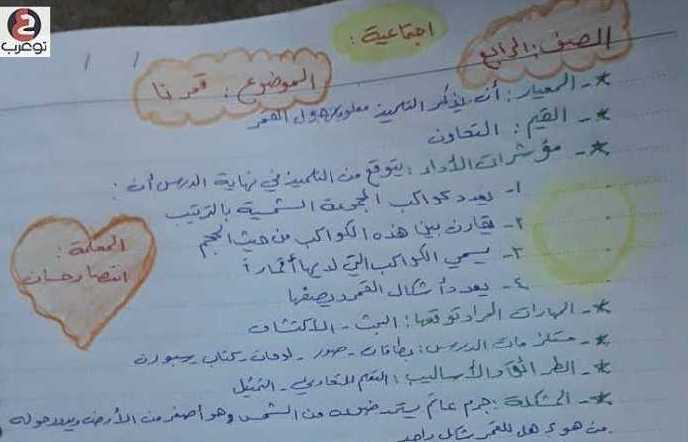 توعرب
اجتماعية :
الصف : الرابع
الموضوع : قمرنا
* - المعيار : أن يذكر التلميذ معلومات حول القمر
* - القيم : التعاون
* - مؤشرات الأداء : يتوقع من التلميذ في نهاية الدرس أن :
١- يعدد كواكب المجموعة الشمسية بالترتيب
٢- يقارن بين هذه الكواكب من حيث الحجم
٣- يسمي الكواكب التي لديها أقماراً
٤- يعدد أشكال القمر ويصفها
المعلمة :
انتصار حسان
* - المهارات المراد توقعها : البحث - الاكتشاف
* - مستلزمات الدرس : بطاقات - صور - لوحات - كتاب - سبورة
* - الطرائق والأساليب : التعلم التعاوني - التمثيل
* - المشكلة : جرم عاتم يستمد ضوءه من الشمس وهو أصغر من الأرض ويدور حولها
من هو ؟ هل للقمر شكل واحد